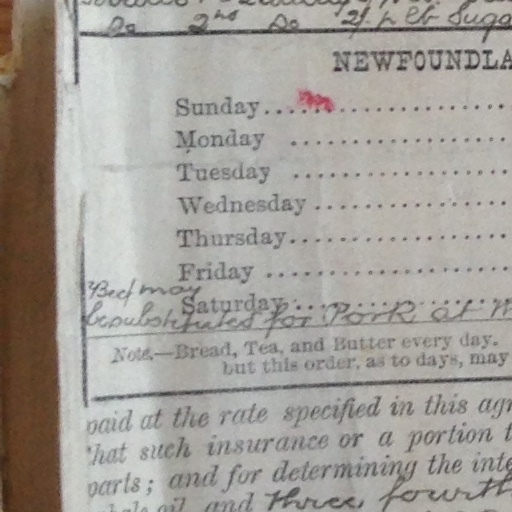 Do 2nd Do 2/. p Ct Suga
NEWFOUNDLA
Sunday
Monday
Tuesday
Wednesday
Thursday
Friday
Beef may
Saturday
be substituted for Pork at
Note.—Bread, Tea, and Butter every day.
but this order, as to days, may
paid at the rate specified in this agr
that such insurance or a portion t
parts; and for determining the inte
oil, and three fourth